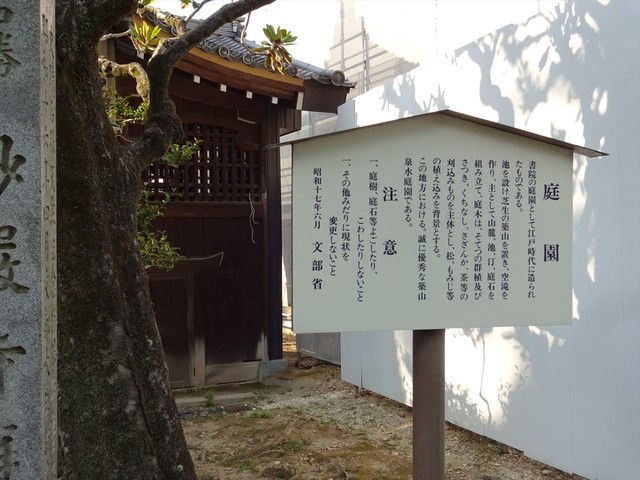 庭園
書院の庭園として江戸時代に造られ
たものである。
池を設け芝生の築山を置き、空滝を
作り、主として山麓、池、汀、庭石を
組み立て、庭木は、そてつの群植及び
さつき、くちなし、さざんか、茶等の
刈込みものを主体とし、松、もみじ等
の植え込みを背景とする。
この地方における、誠に優秀な築山
泉水庭園である。
注意
一、庭樹、庭石等よごしたり、
こわしたりしないこと
一、その他みだりに現状を
変更しないこと
昭和十七年六月 文部省
勝 妙嚴寺